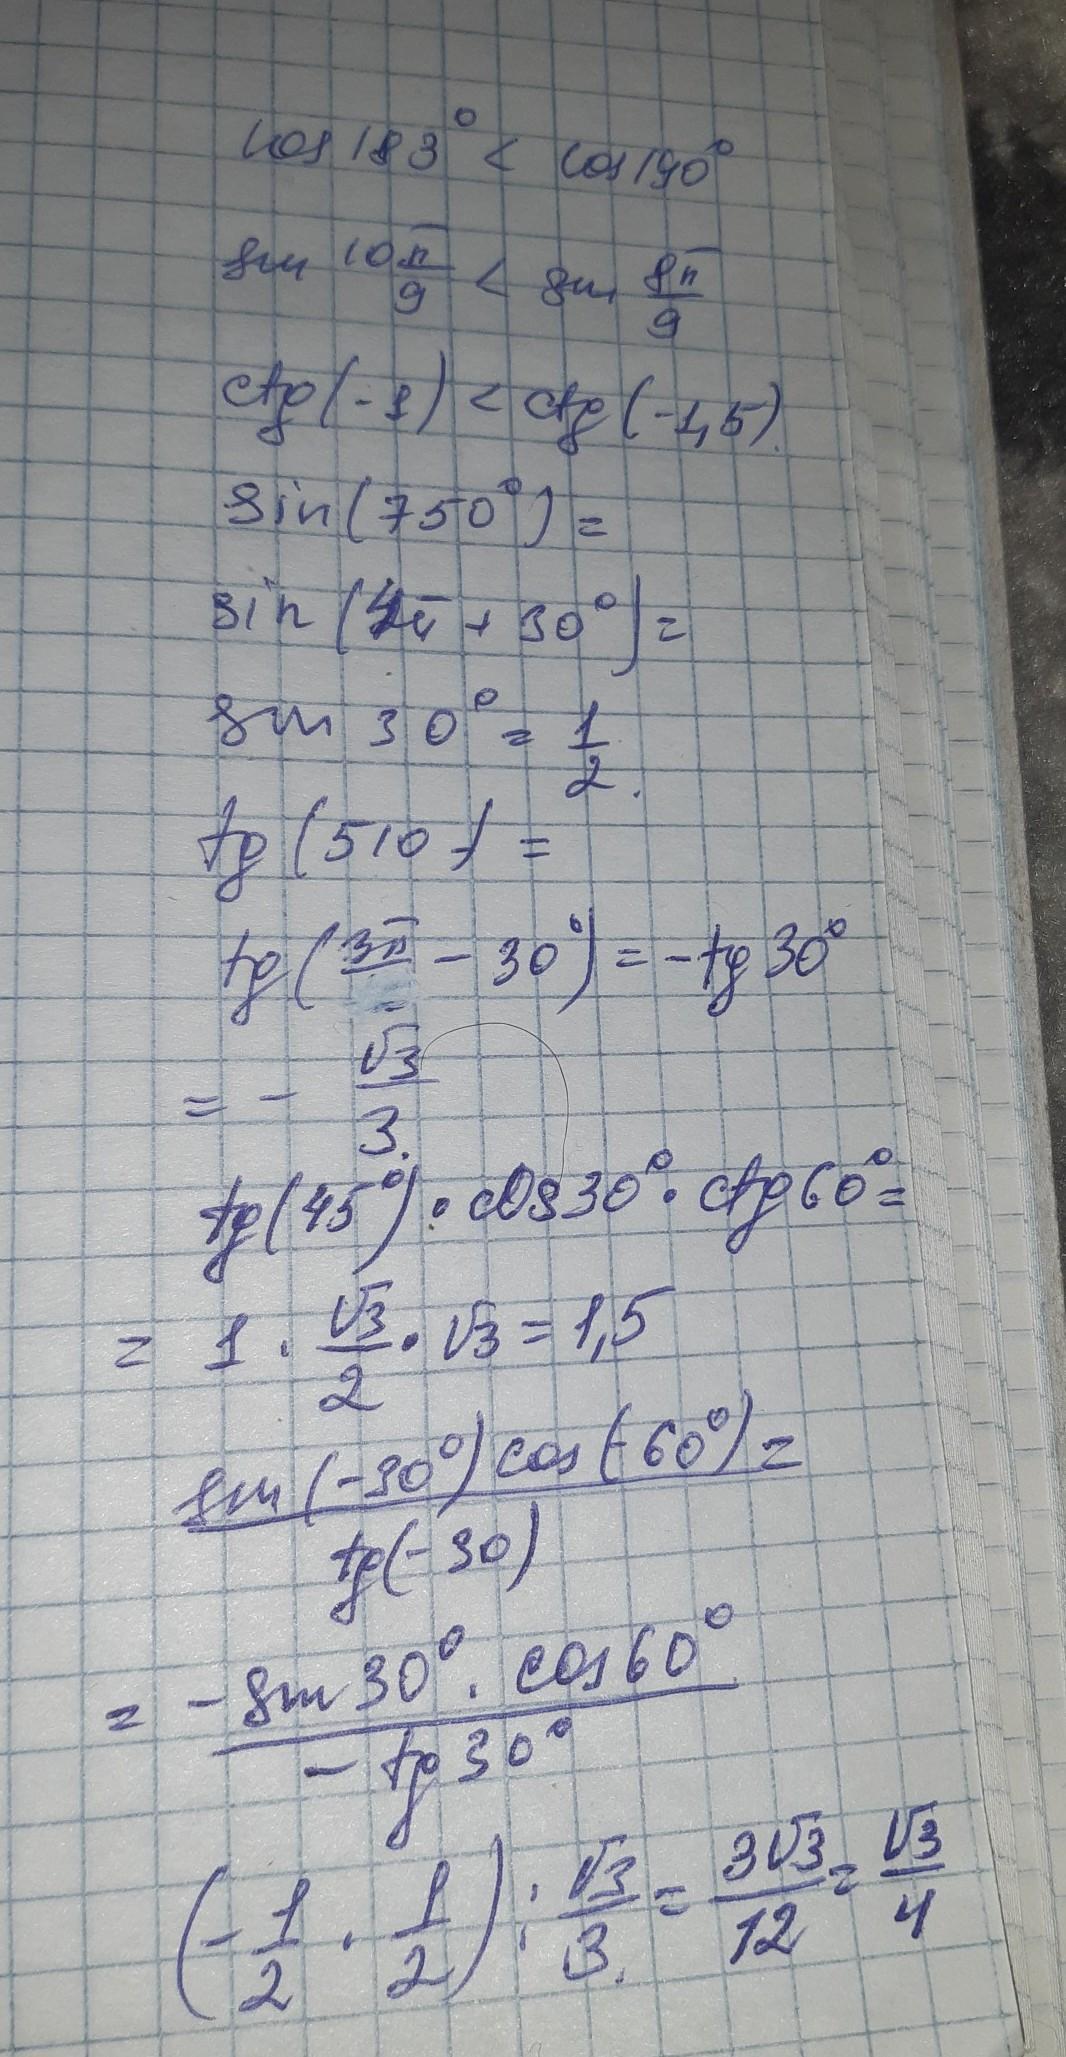 cos 183° < cos 190°
sin 10π/9 < sin 8π/9
ctg(-1) < ctg(-1,5).
sin(750°) =
sin(4π + 30°) =
sin 30° = 1/2.
tg(510) =
tg(3π - 30°) = -tg 30°
= - √3/3.
tg(45°) · cos 30° · ctg 60° =
= 1 · √3/2 · √3 = 1,5
sin(-30°) cos(-60°) / tg(-30) =
= -sin 30° · cos 60° / -tg 30°
(-1/2 · 1/2) : √3/3. = 3√3/12 = √3/4